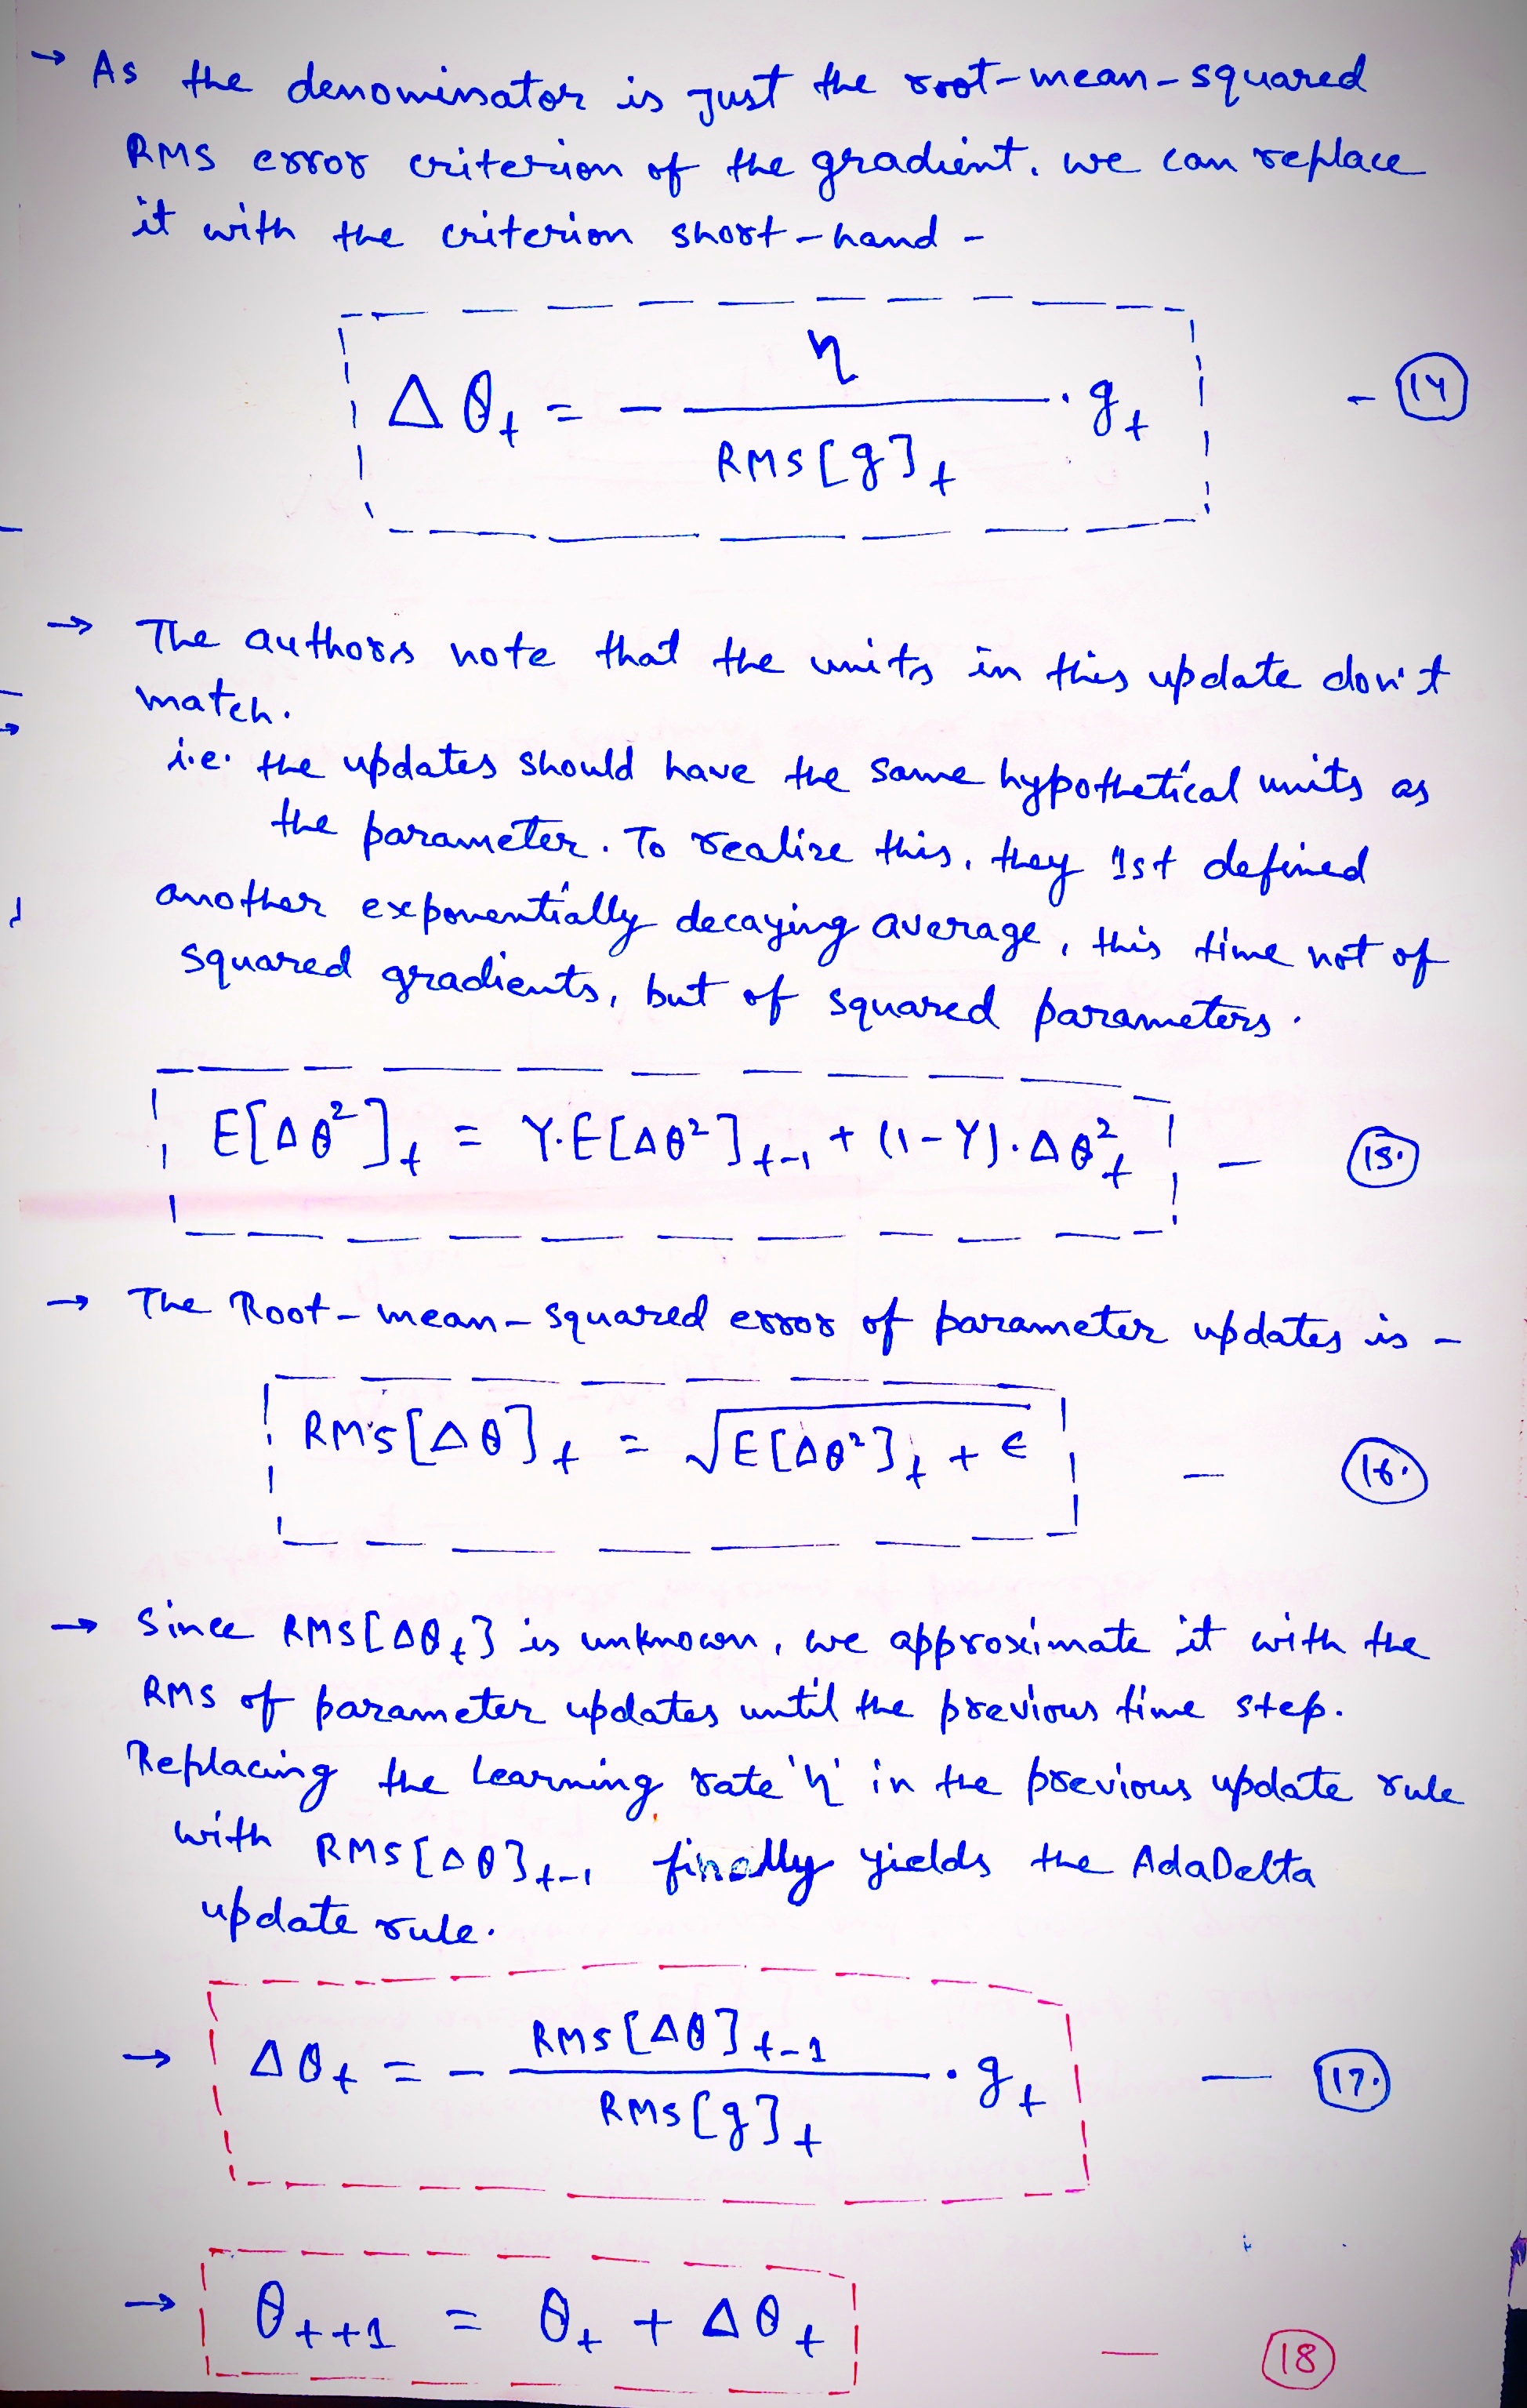 → As the denominator is just the root-mean-squared
RMS error criterion of the gradient. we can replace
it with the criterion short-hand -
Δθₜ = - η / RMS[g]ₜ · gₜ - (14)
→ The authors note that the units in this update don't
match.
i.e. the updates should have the same hypothetical units as
the parameter. To realize this, they 1st defined
another exponentially decaying average, this time not of
squared gradients, but of squared parameters.
E[Δθ²]ₜ = γ·E[Δθ²]ₜ₋₁ + (1-γ)·Δθ²ₜ - (15.)
→ The Root-mean-squared error of parameter updates is -
RMS[Δθ]ₜ = √(E[Δθ²]ₜ + ε) - (16.)
→ Since RMS[Δθₜ] is unknown, we approximate it with the
RMS of parameter updates until the previous time step.
Replacing the learning rate 'η' in the previous update rule
with RMS[Δθ]ₜ₋₁ finally yields the AdaDelta
update rule.
→ Δθₜ = - RMS[Δθ]ₜ₋₁ / RMS[g]ₜ · gₜ - (17.)
→ θₜ₊₁ = θₜ + Δθₜ - (18)